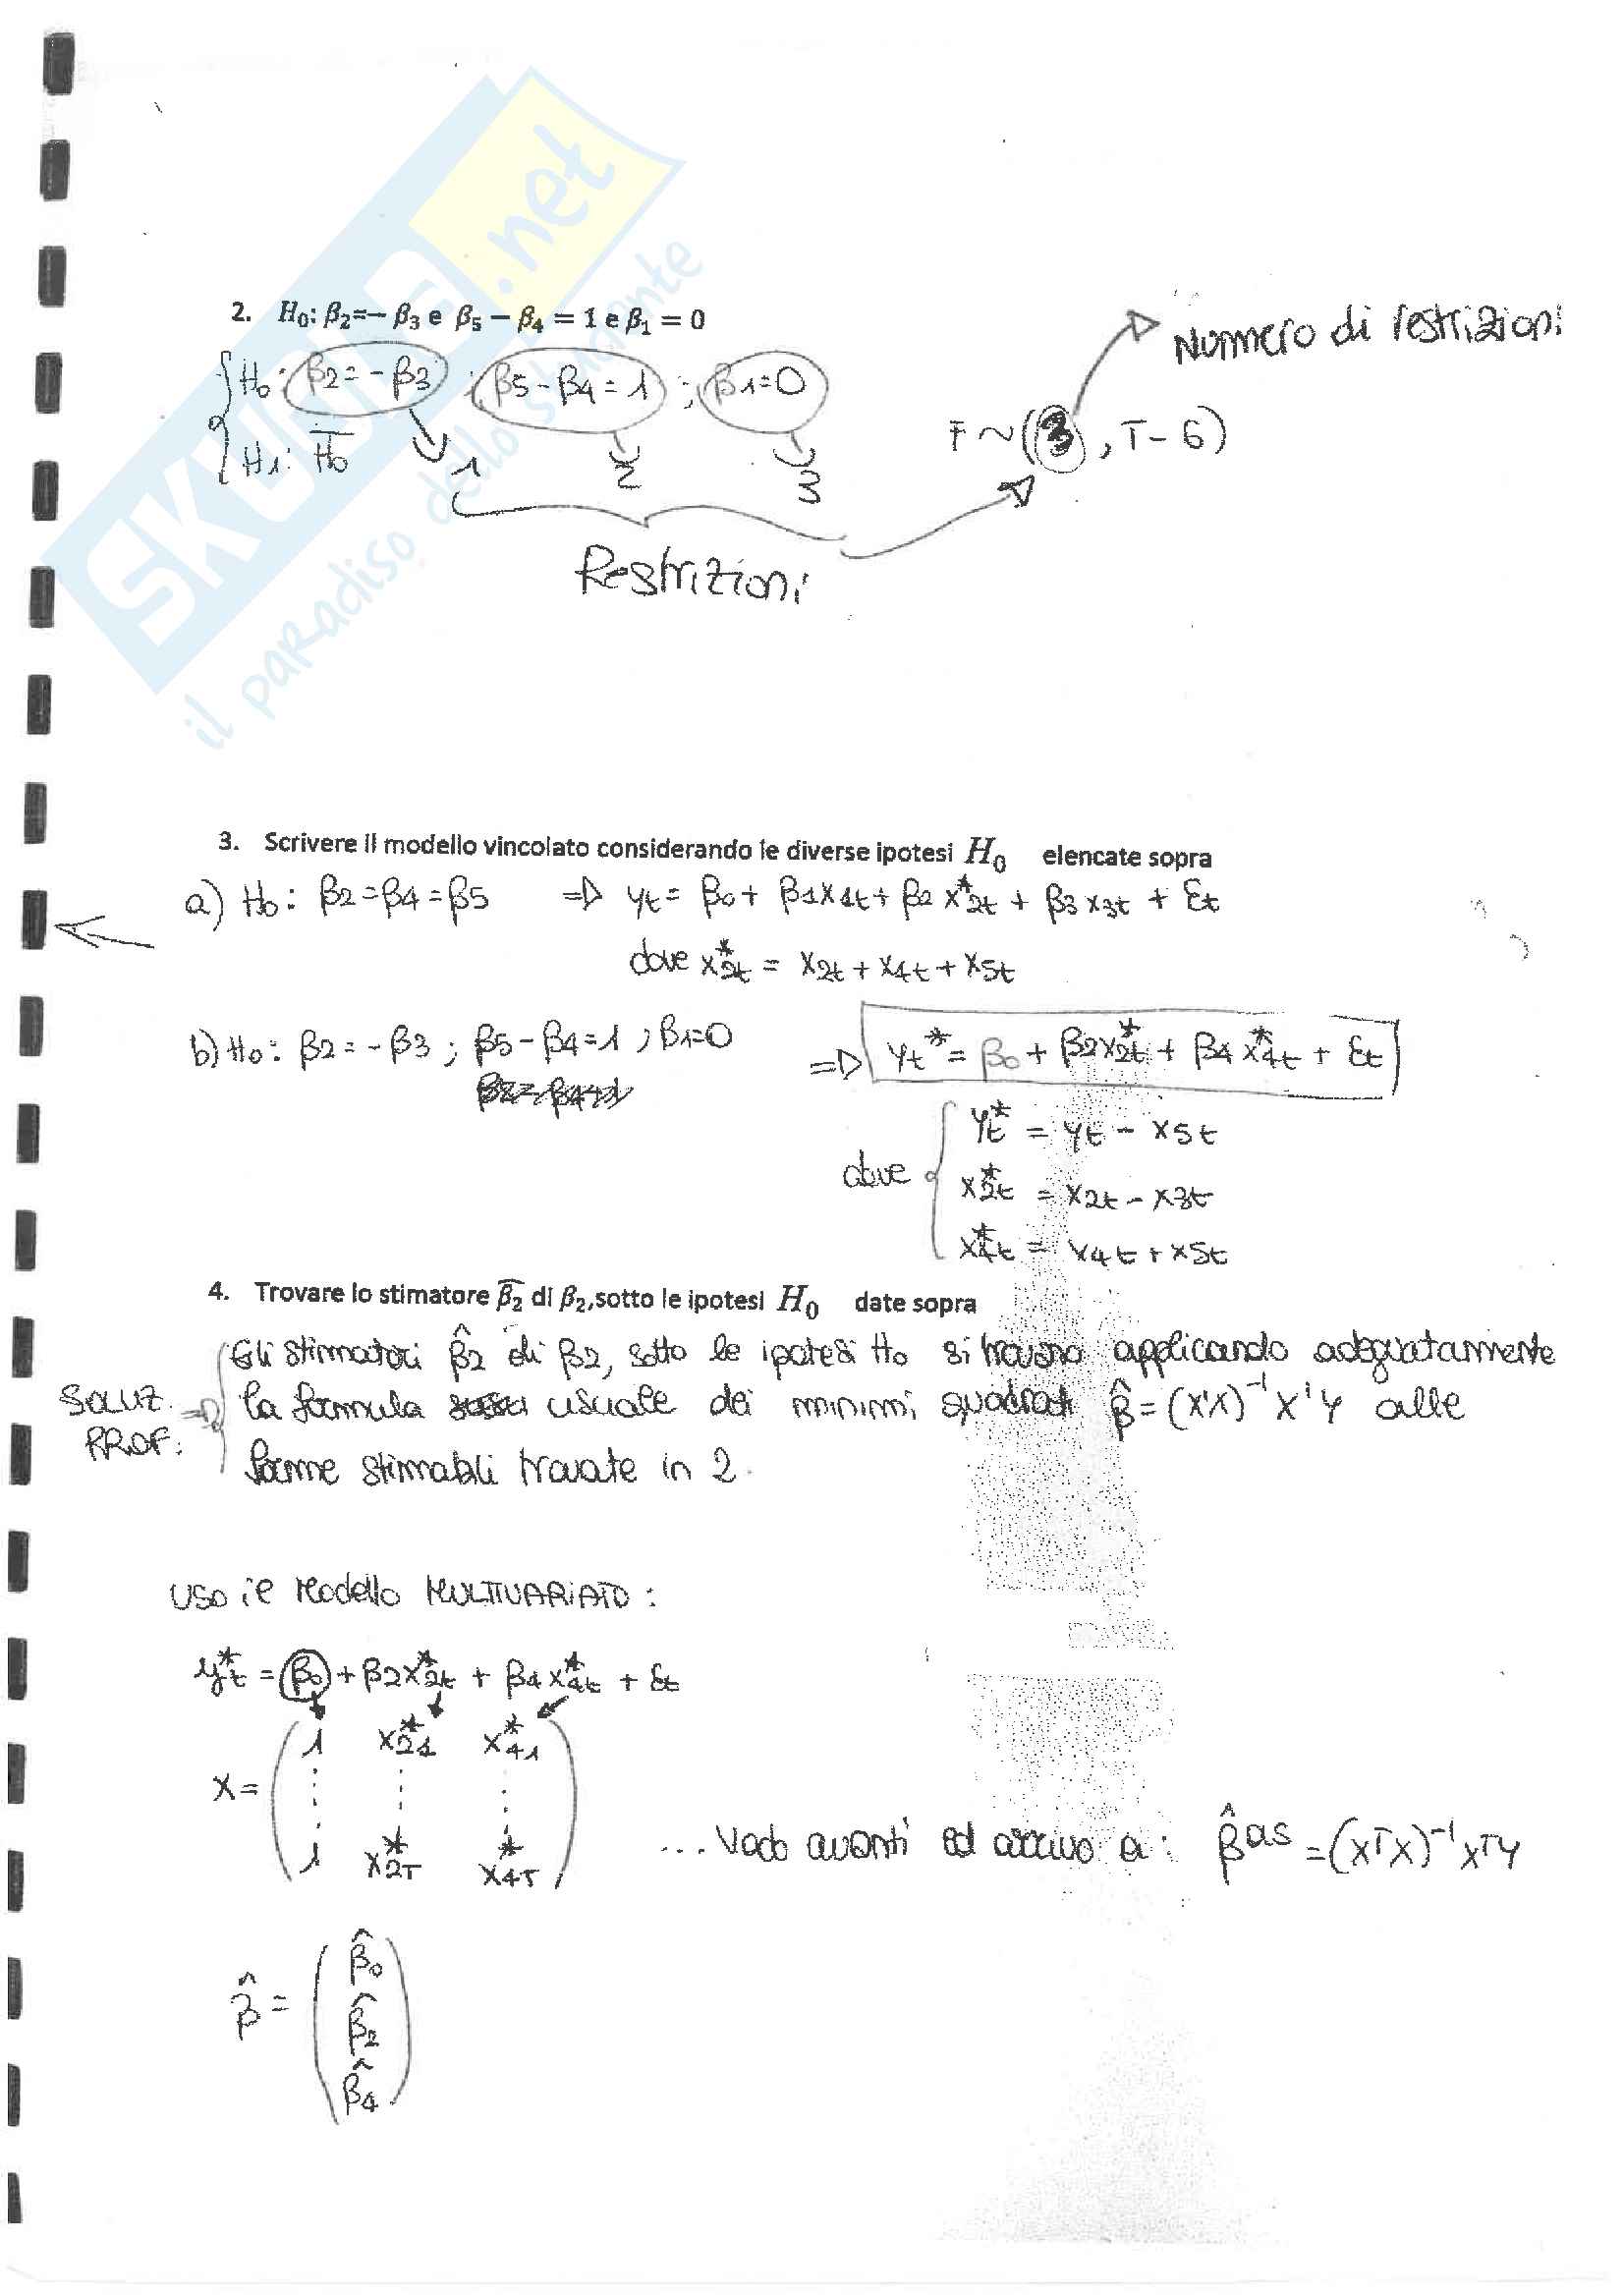 SKUOLA.net
il paradiso dello studente
2. H₀: β₂=− β₃ e β₅ − β₄ = 1 e β₁ = 0
H₀: β2 = -β3 ; β5 - β4 = 1 ; β1=0
H1: H̄₀
1 2 3
Restrizioni
Numero di restrizioni
F ~ (3, T-6)
3. Scrivere il modello vincolato considerando le diverse ipotesi H₀ elencate sopra
a) H₀: β2 = β4 = β5 => yt = β0 + β1x1t + β2 x*2t + β3 x3t + εt
dove x*2t = x2t + x4t + x5t
b) H₀: β2 = -β3 ; β5 - β4 = 1 ; β1=0 => yt* = β0 + β2x*2t + β4 x*4t + εt
dove
yt* = yt - x5t
x*2t = x2t - x3t
x*4t = x4t + x5t
4. Trovare lo stimatore β̂₂ di β₂,sotto le ipotesi H₀ date sopra
SOLUZ. PROF: =>
Gli stimatori β̂2 di β2, sotto le ipotesi H₀ si trovano applicando adeguatamente
la formula usuale dei minimi quadrati β̂ = (X'X)⁻¹ X'Y alle
forme stimabili trovate in 2.
USO il Modello MULTIVARIATO:
y*t = β0 + β2x*2t + β4x*4t + εt
1 x*21 x*41
X = ⋮ ⋮ ⋮
1 x*2T x*4T
... Vado avanti ed arrivo a: β̂ᴼᴸˢ = (XᵀX)⁻¹ XᵀY
β̂ = (β̂0
β̂2
β̂4)